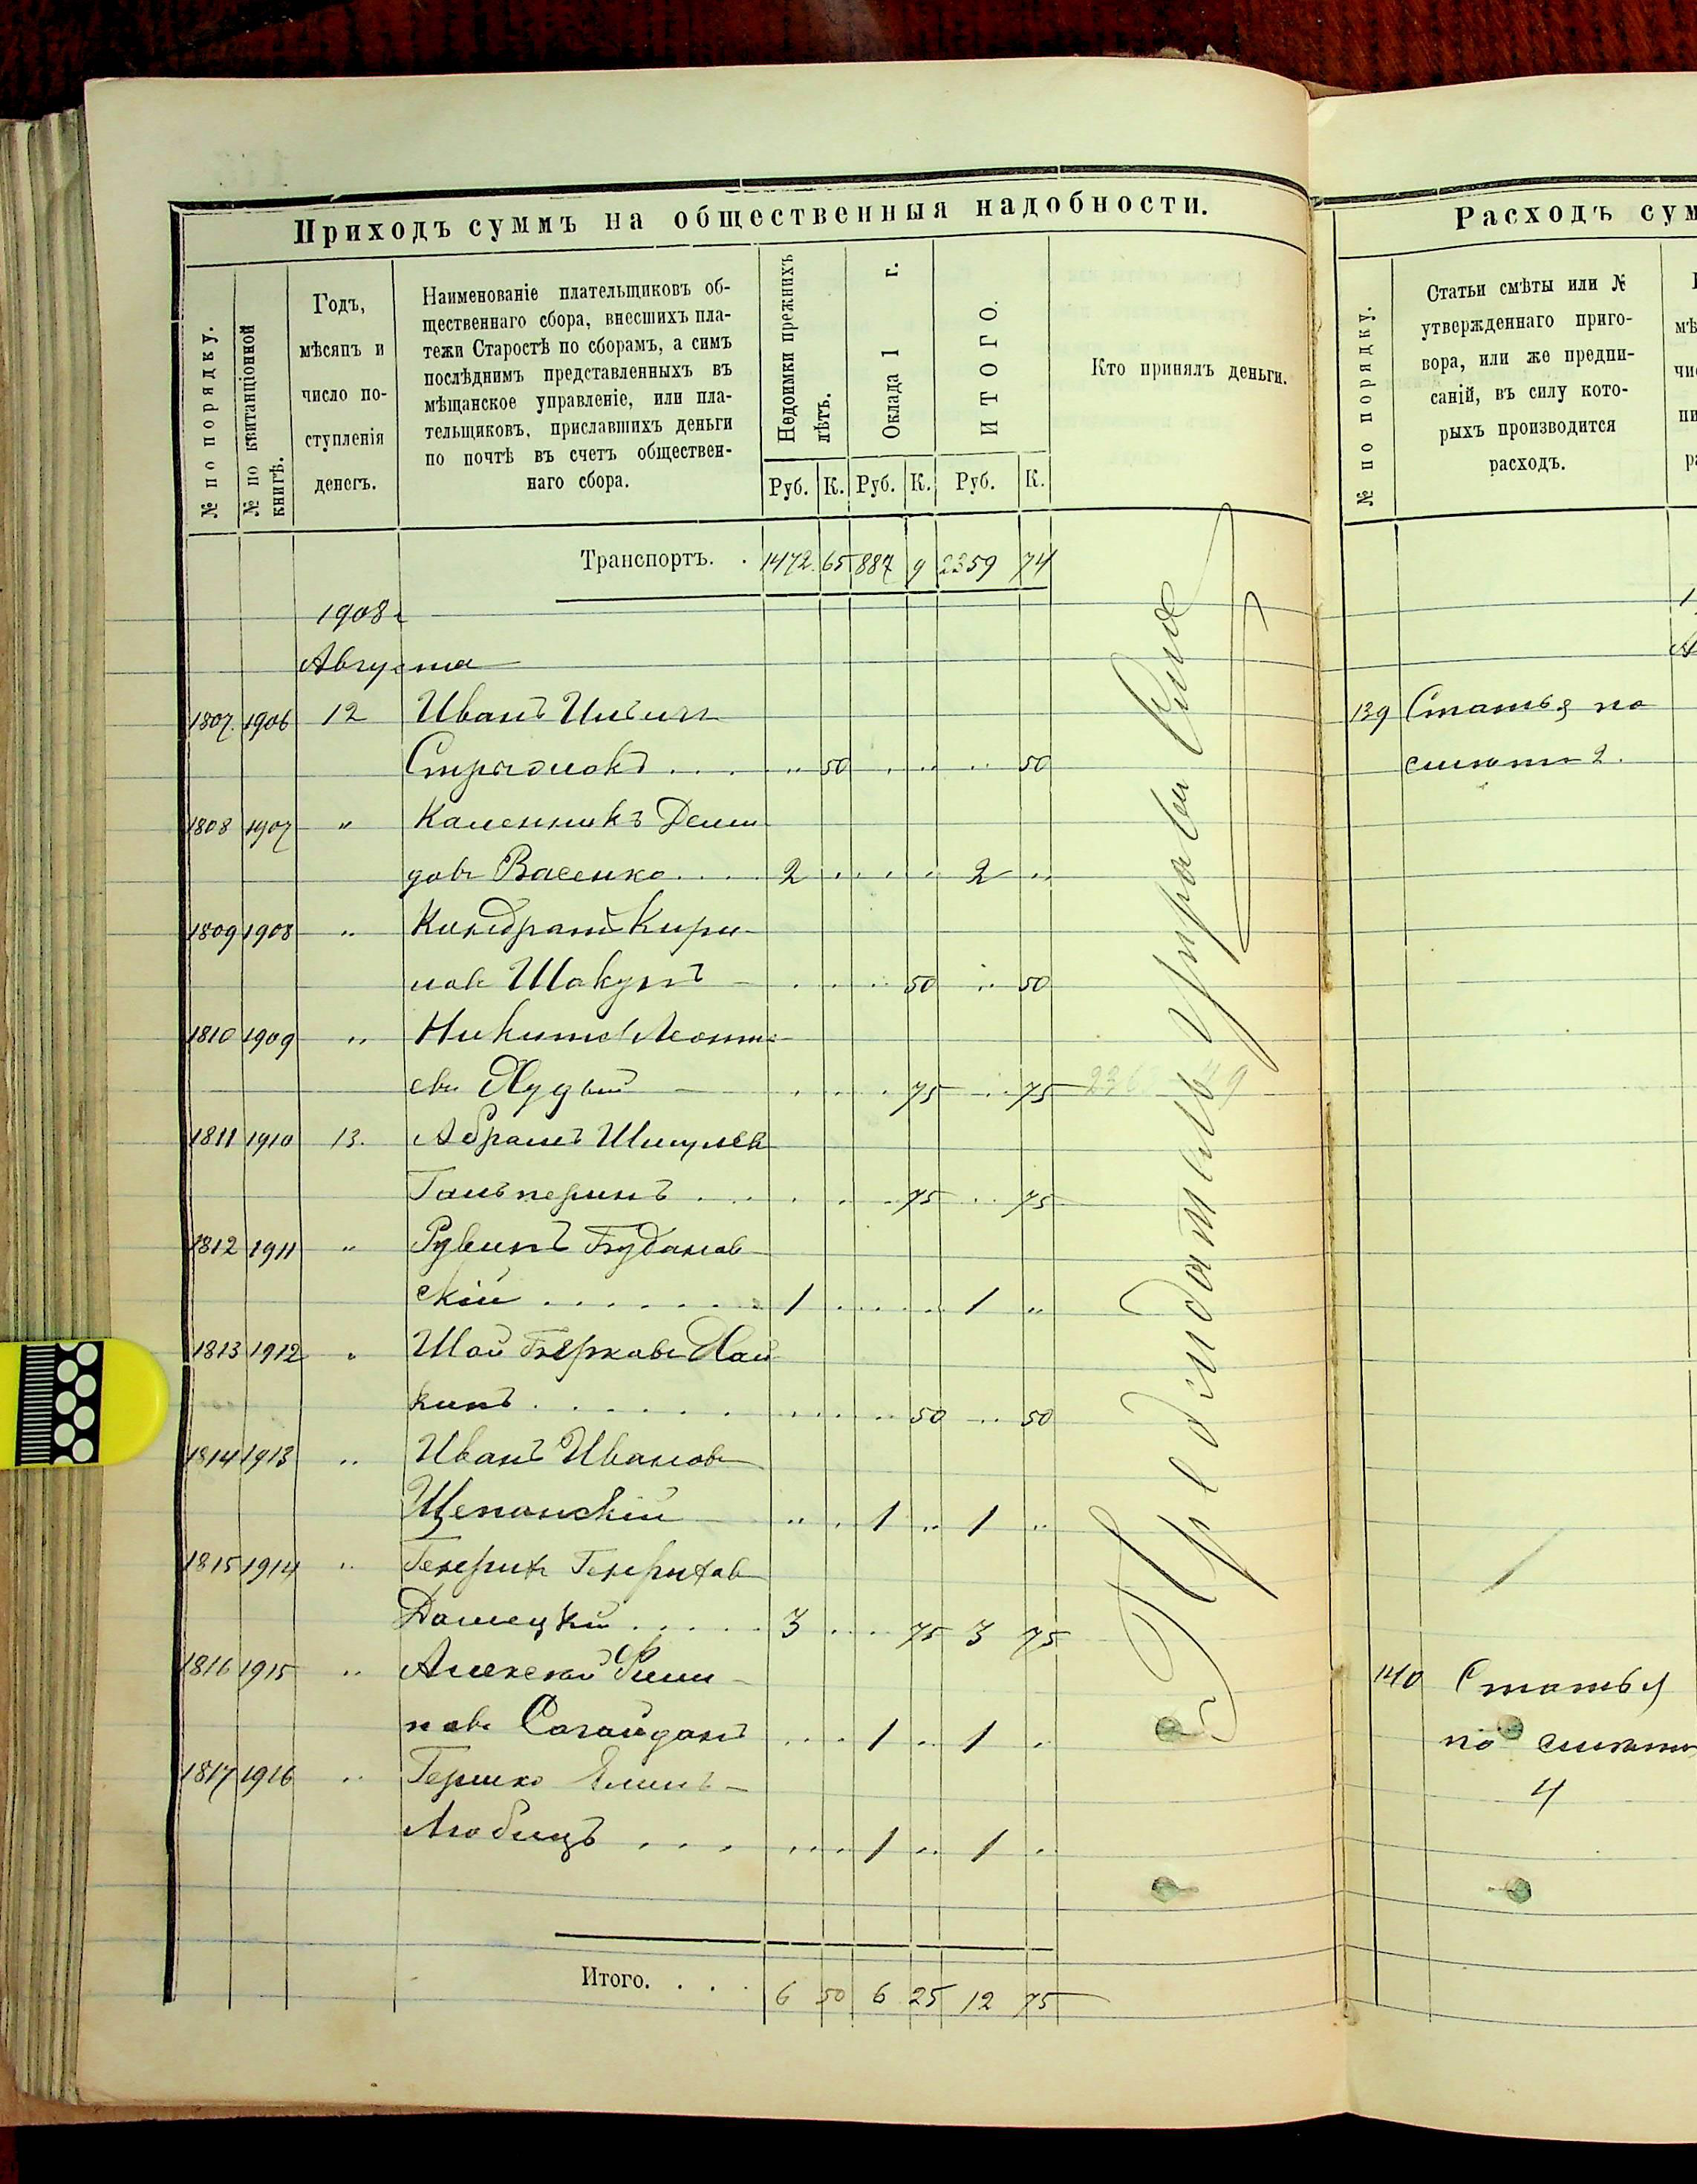 Приходъ суммъ на общественныя надобности.
№ по порядку.
№ по квитанціонной книгѣ.
Годъ,
мѣсяцъ и
число по-
ступленія
денегъ.
Наименованіе плательщиковъ об-
щественнаго сбора, внесшихъ пла-
тежи Старостѣ по сборамъ, а симъ
послѣднимъ представленныхъ въ
мѣщанское управленіе, или пла-
тельщиковъ, приславшихъ деньги
по почтѣ въ счетъ обществен-
наго сбора.
Недоимки прежнихъ лѣтъ.
Оклада 1 г.
ИТОГО.
Кто принялъ деньги.
Руб. К. Руб. К. Руб. К.
Транспортъ. . 1472. 65 887 9 2359 74
1908 г
Августа
1807. 1906 12 Иванъ
50 50
1808 1907 "
Васенко.... 2 2
1809 1908 " Кири-
50 50
1810 1909 " Никита Леонть-
евъ Худый 75 75
1811 1910 13. Абрамъ
Гальперинъ .. 75 75
1812 1911 " Рувинъ Будянов-
скій ....... 1 1 "
1813 1912 " Шая Берковъ Хай-
кинъ ...... 50 50
1814 1913 " Иванъ Ивановъ
Щепанскій 1 1 "
1815 1914 "
..... 3 75 3 75
1816 1915 " Алексей
Сагайданъ 1 1
1817 1916 " Гершко
Любицъ ... 1 1
Итого. . . . 6 50 6 25 12 75
Предсѣдатель Управы
Расходъ сум
№ по порядку.
Статьи смѣты или №
утвержденнаго приго-
вора, или же предпи-
саній, въ силу кото-
рыхъ производится
расходъ.
139 Статья по
смѣтѣ 2.
140 Статья
по смѣтѣ
4